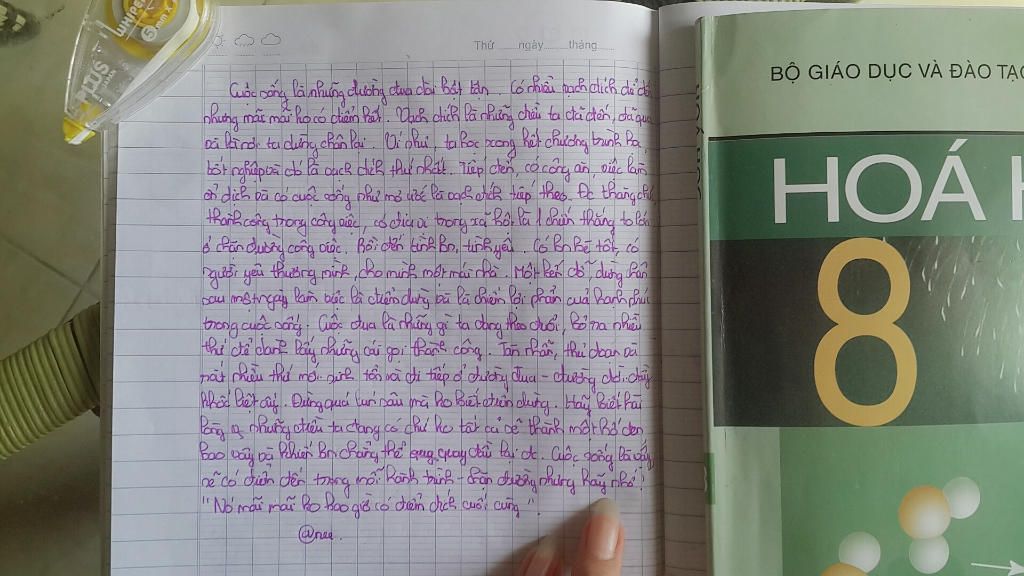 WHIPER
5mm
PLUS
Thứ ngày tháng
Cuộc sống là những đường đua dài bất tận. Có nhiều vạch đích để đến
nhưng mãi mãi ko có điểm kết. Vạch đích là những điều ta đã đến, đã qua
và là nơi ta dừng chân lại. Ví như, ta học xong hết chương trình học
tốt nghiệp và đó là vạch đích thứ nhất. Tiếp đến, có công ăn, việc làm
ổn định và có cuộc sống như mơ ước là vạch đích tiếp theo. Để thăng chức
thành công trong công việc, có địa vị trong xã hội là 1 chiến thắng to lớn
ở chặn đường công việc. Rồi đến tình bn, tình yêu. Có bn bè tốt, có
người yêu thương mình, cho mình một mái nhà. Một bến đỗ, dừng chân
sau một ngày làm việc là điểm dừng và là chiến lợi phẩm của hạnh phúc
trong cuộc sống. Cuộc đua là những gì ta đang theo đuổi, bỏ ra nhiều
thứ để dành lấy những cái gọi thành công. Tàn nhẫn, thủ đoạn và
mất nhiều thứ mới sinh tồn và đi tiếp ở đường đua - đường đời đầy
khốc liệt này. Đừng quá lún sâu mà ko biết điểm dừng. Hãy biết hài
lòng vs những điều ta đang có chứ ko tất cả sẽ thành một hố đen
bao vây và khiến bn chẳng thể quay đầu lại đc. Cuộc sống là vậy
sẽ có điểm đến trong mỗi hành trình - chặn đường nhưng hãy nhớ:
"Nó mãi mãi ko bao giờ có điểm đích cuối cùng".
@nee.
BỘ GIÁO DỤC VÀ ĐÀO TẠO
HOÁ H
8